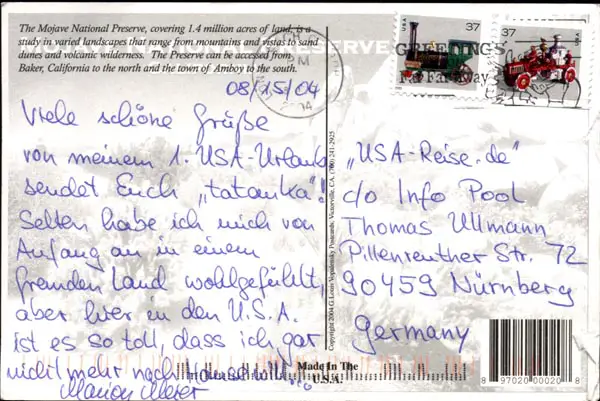 The Mojave National Preserve, covering 1.4 million acres of land, is a
study in varied landscapes that range from mountains and vistas to sand
dunes and volcanic wilderness. The Preserve can be accessed from
Baker, California to the north and the town of Amboy to the south.
08/15/04
Viele schöne Grüße
von meinem 1. USA-Urlaub
sendet Euch „tatanka"!
Selten habe ich mich von
Anfang an in einem
fremden Land wohlgefühlt,
aber hier in den U.S.A.
ist es so toll, dass ich gar
nicht mehr nach Hause will...
Copyright 2004 G. Louis
Postcards, Victorville, CA. (760) 241-2925
USA 37
USA 37
GREETINGS
„USA-Reise.de"
c/o Info Pool
Thomas Ullmann
Pillenreuther Str. 72
90459 Nürnberg
Germany
Made In The
U.S.A.
8 97020 00020 8